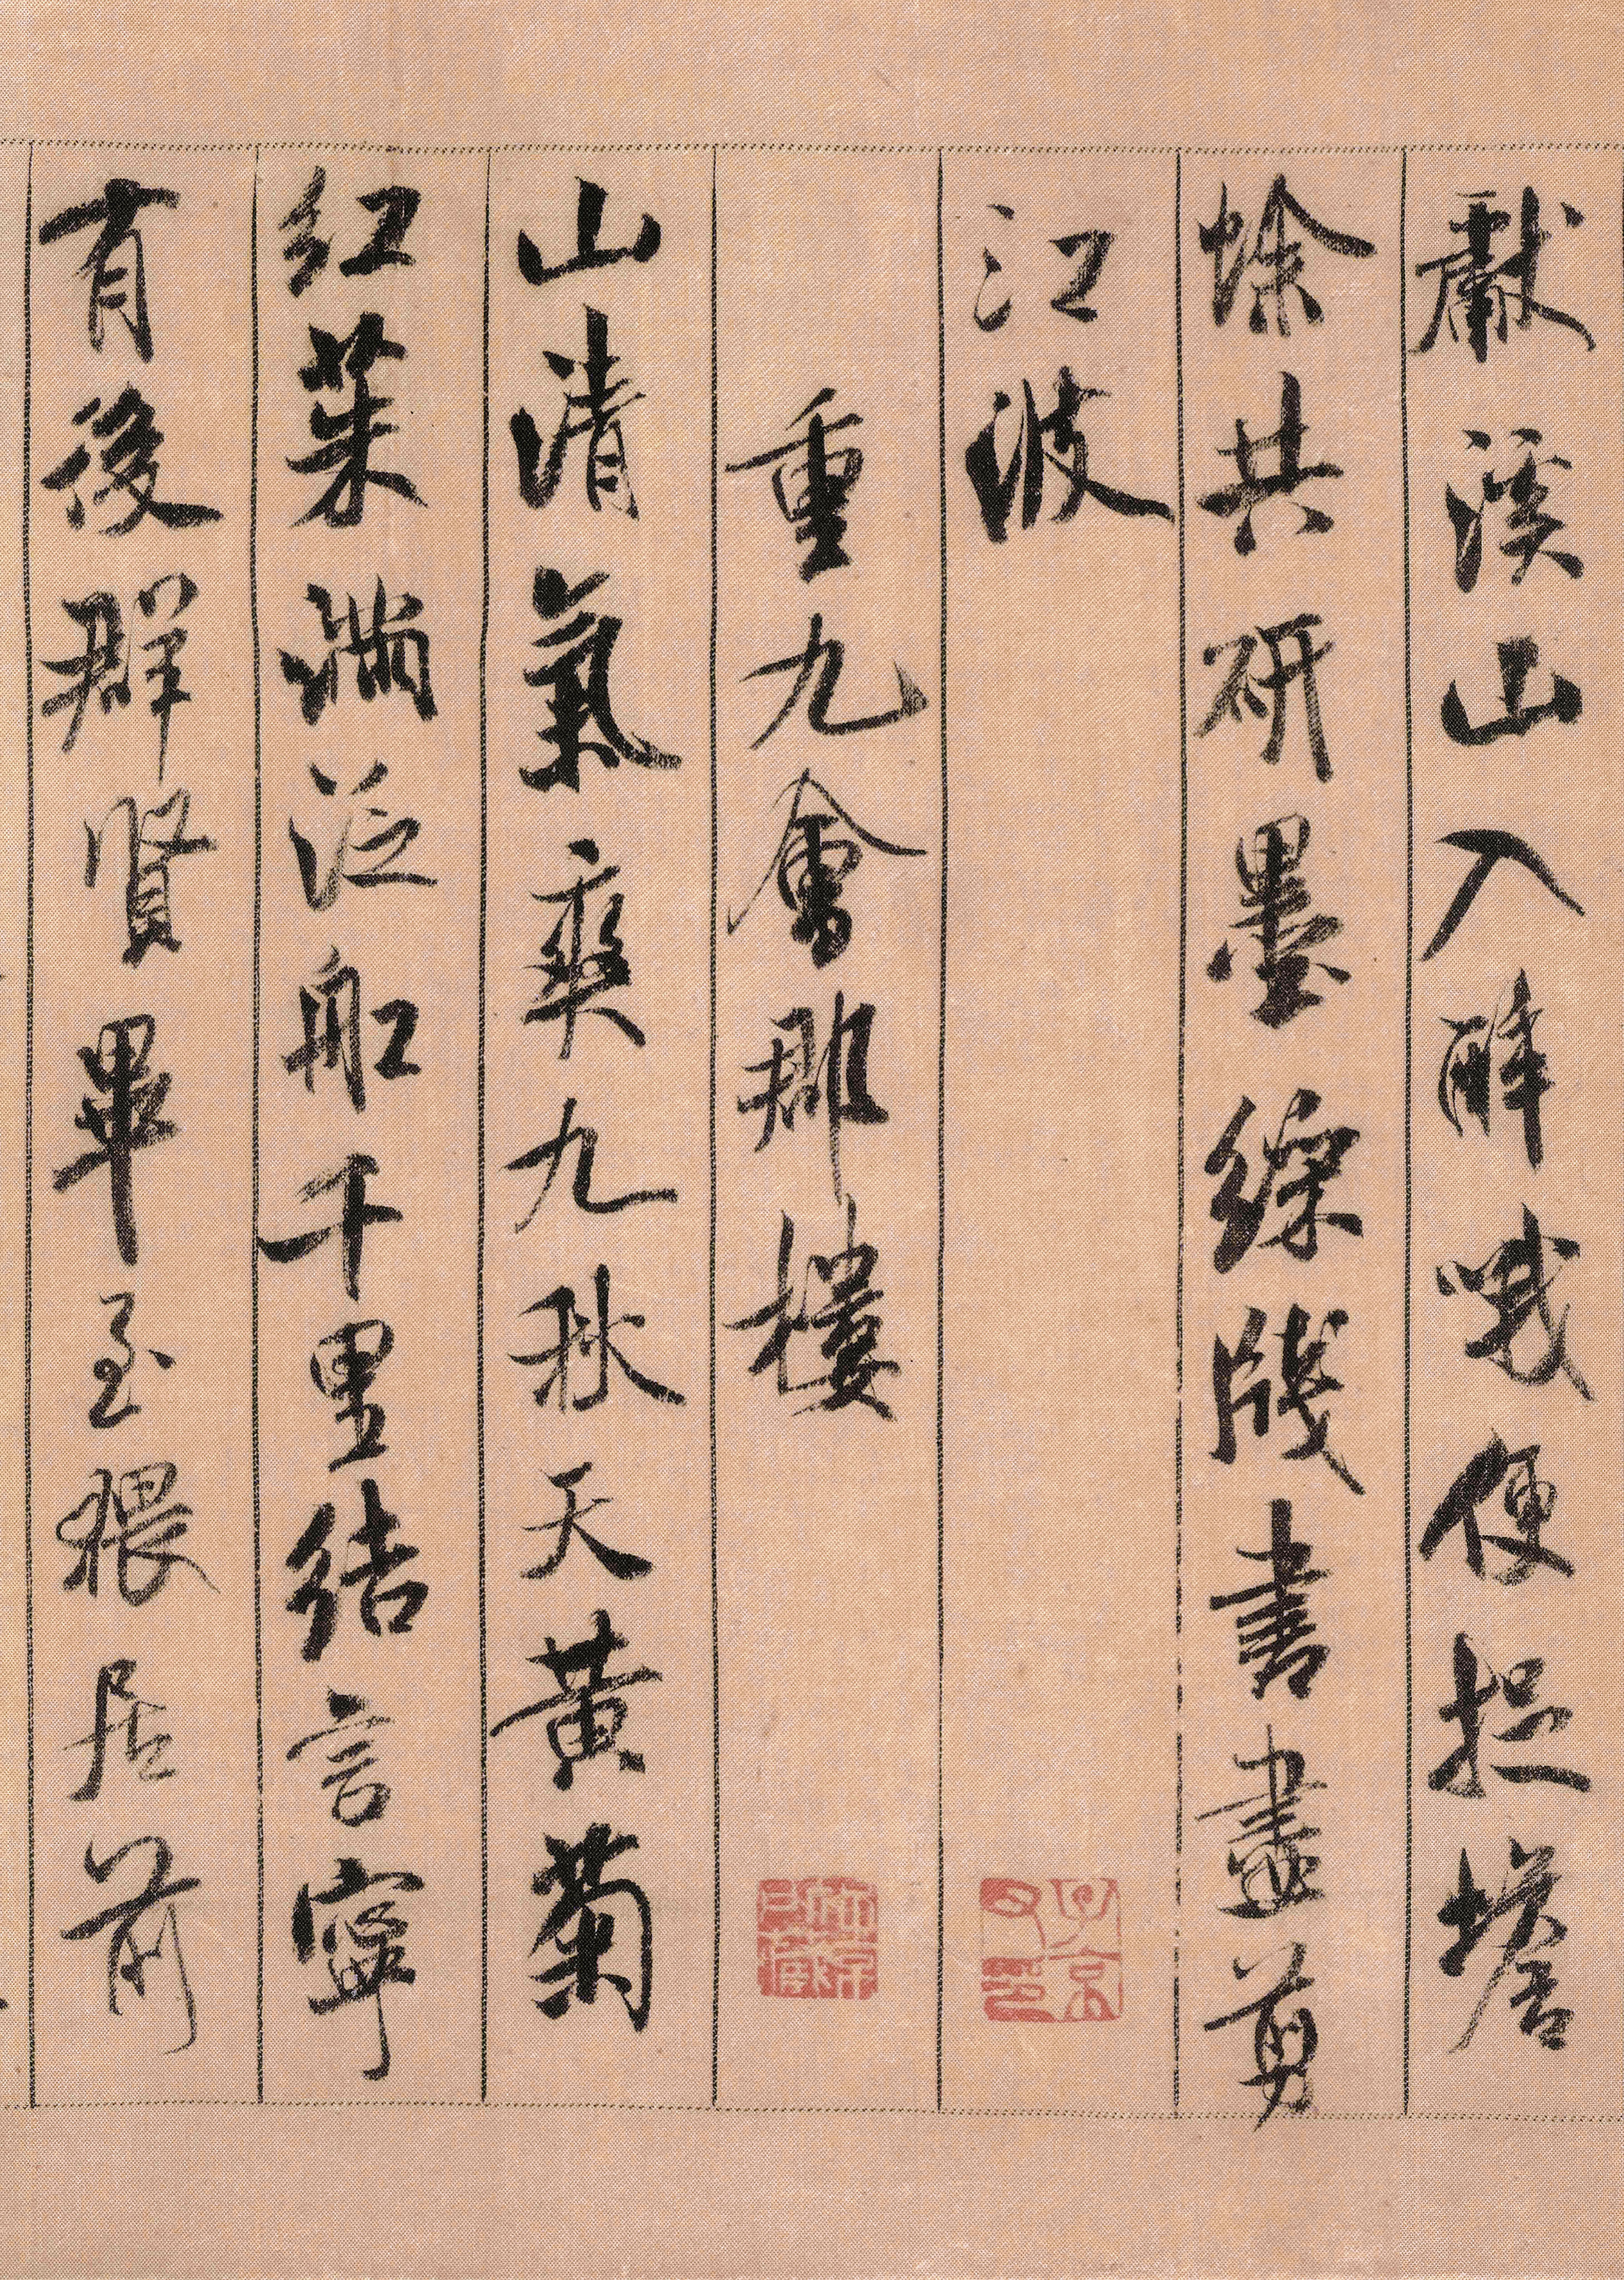 獻溪山入醉哦便捉蟾
蜍共研墨綵牋書盡剪
江波
重九會郡樓
山清氣爽九秋天黃菊
紅茱滿泛船千里結言寧
有後群賢畢至猥居前